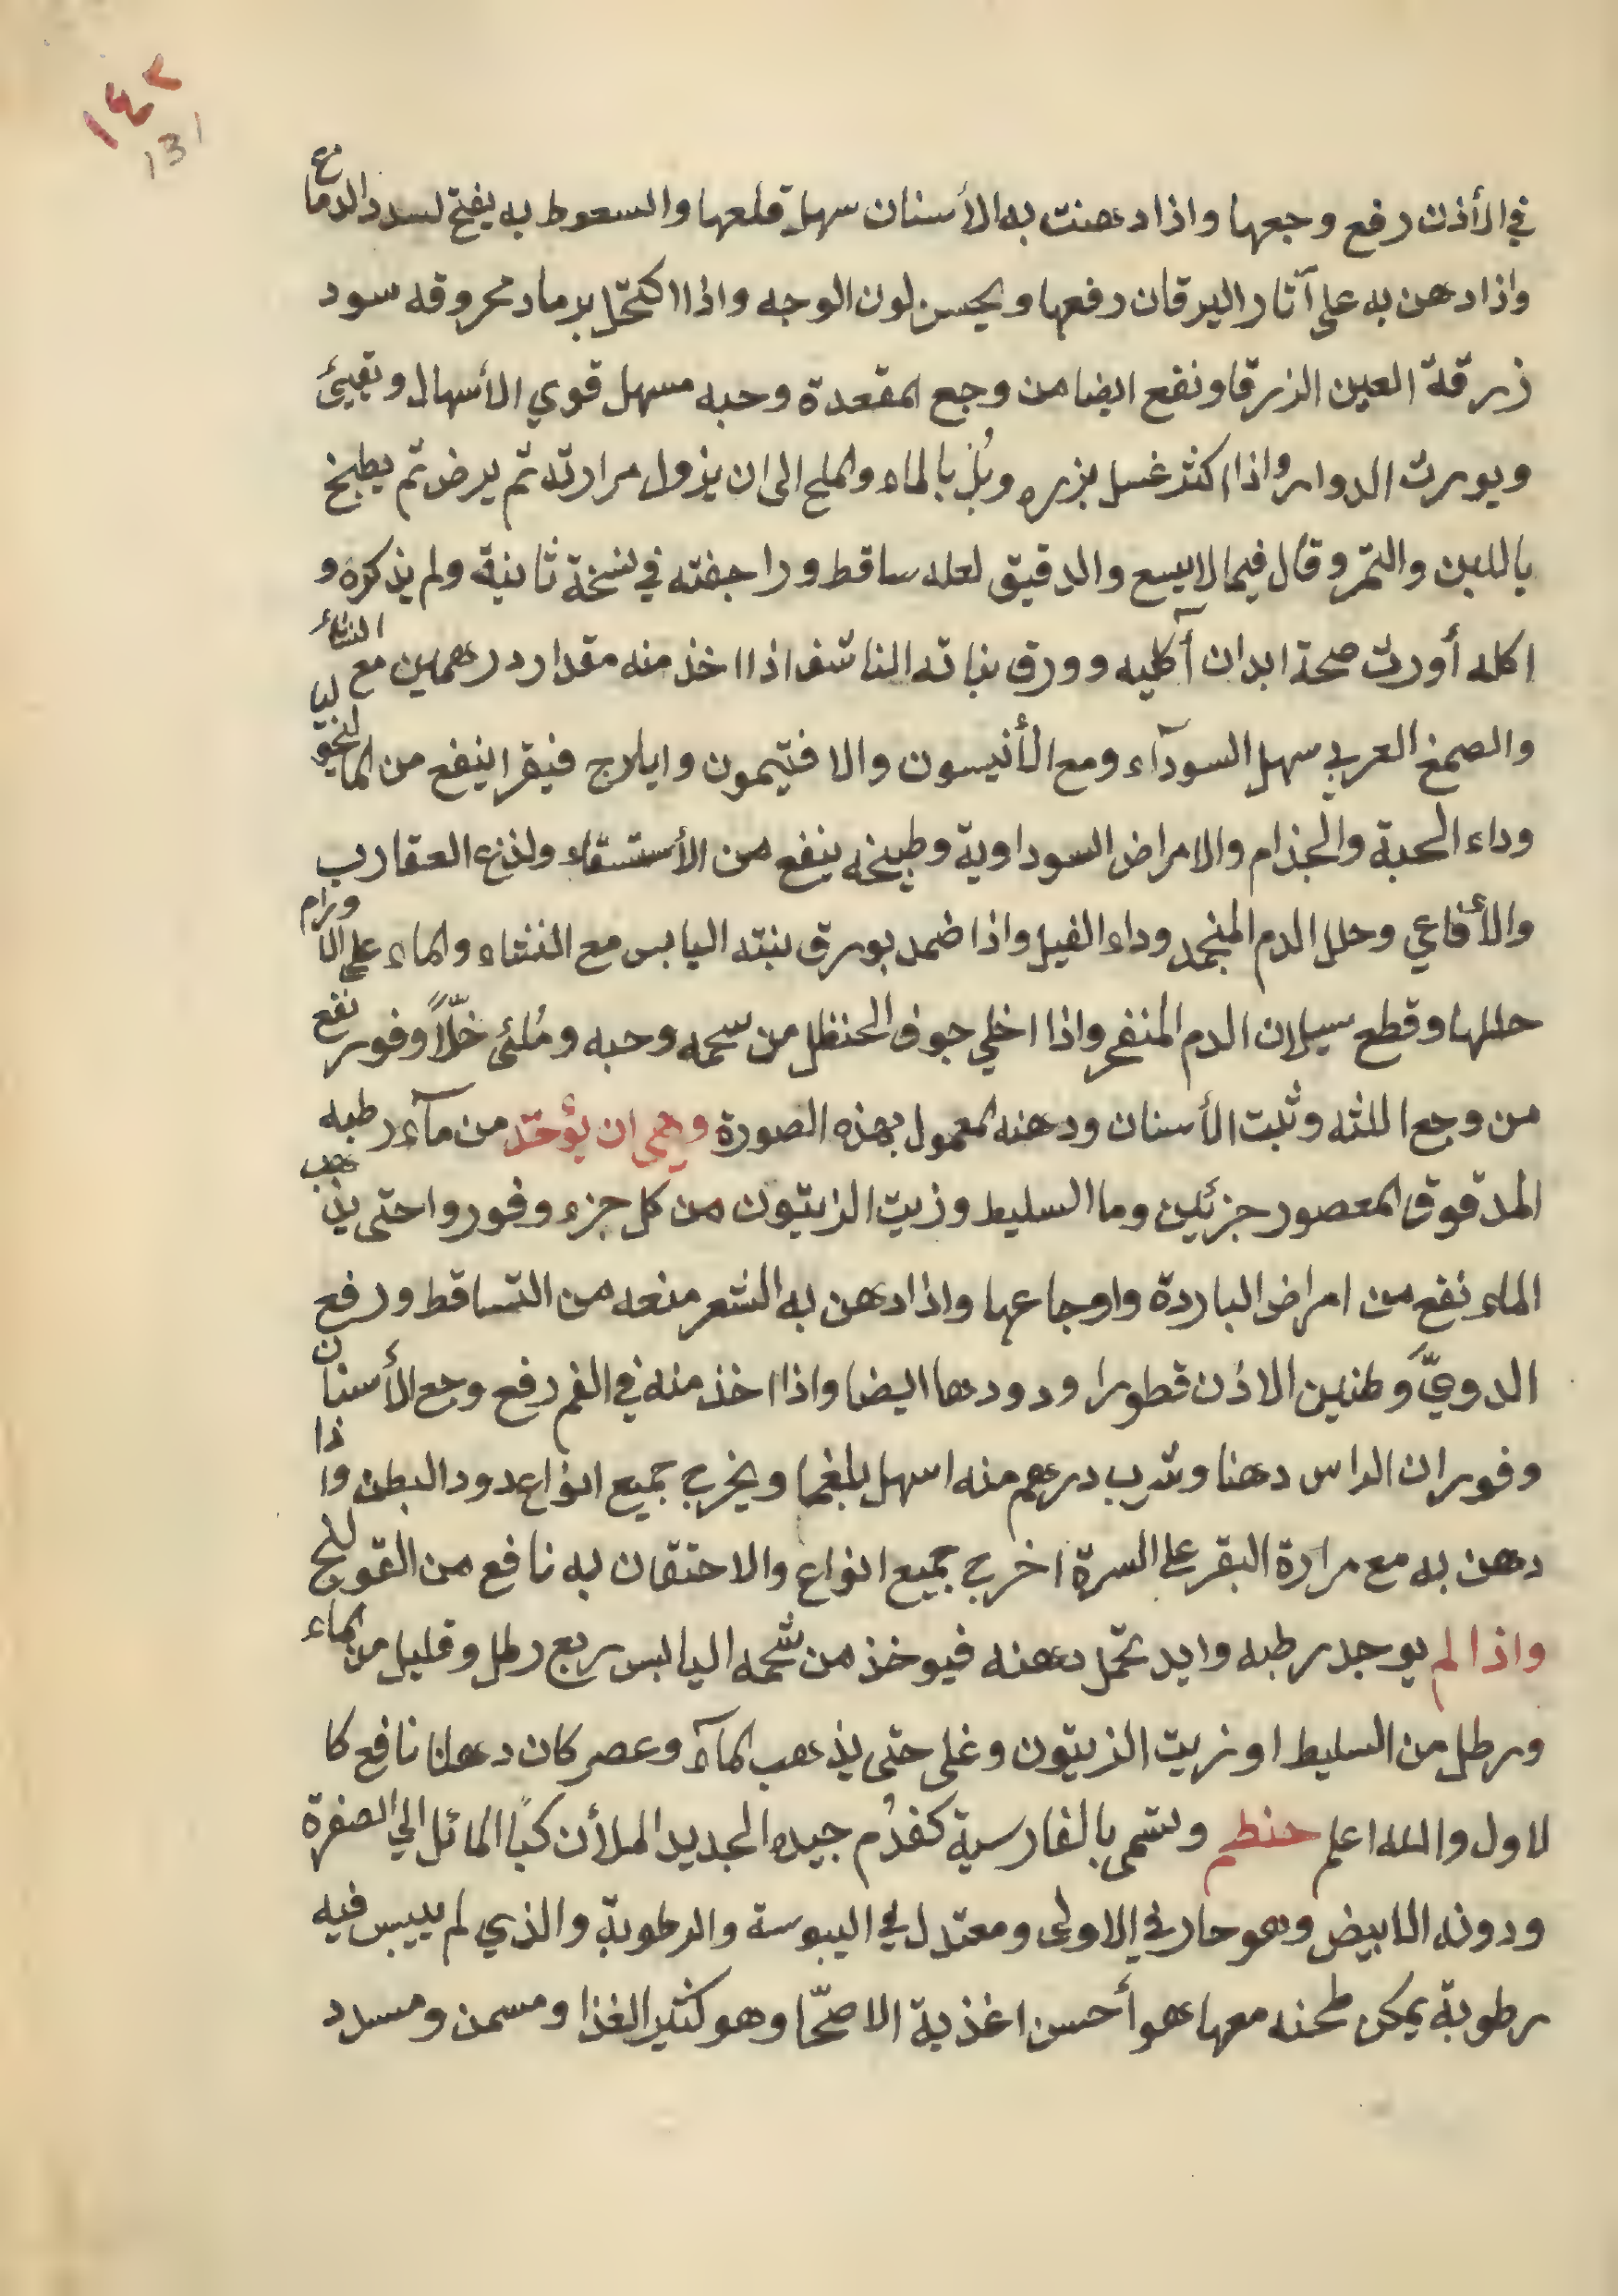 ١٤٢
131
في الأذن رفع وجعها واذا دهنت به الأسنان سهل قلعها والسعوط به يفتح لسدد الدماغ
واذا دهن به على آثار اليرقان رفعها ويحسن لون الوجه واذا اكتحل برماد محروقه سود
زرقة العين الزرقا ونفع ايضا من وجع المقعدة وحبه مسهل قوي الأسهال وتقيئ
ويورث الدوار واذا اكثر غسل بزره وبُلّ بالماء والملح الى ان يزول مرارته ثم يرض ثم يطبخ
باللبن والتمر وقال فيما لا يسع والدقيق لعله ساقط وراجفته في نسخة ثانية ولم يذكره و
اكله أورث صحة ابدان آكليه وورق نباته الناشف اذا اخذ منه مقدار درهمين مع النشاء
والصمغ العربي سهل السودآء ومع الأنيسون والافتيمون وايلارج فيقرا ينفع من المالنخوليا
وداء الحية والجذام والامراض السوداوية وطبيخه ينفع من الأستسقاء ولذع العقارب
والأفاعي وحلل الدم المنجمد وداء الفيل واذا ضمد بورق نبته اليابس مع النشاء والماء على الاورام
حللها وقطع سيلان الدم المنفجر واذا اخلي جوف الحنظل من شحمه وحبه ومُلئ خلّاً وفور نفع
من وجع اللثه وثبت الأسنان ودهنه المعمول بهذه الصورة وهي ان يؤخذ من مآء رطبه
المدقوق المعصور جزئين وما السليط وزيت الزيتون من كل جزء وفوروا حتى يذهب
الماء نفع من امراض الباردة واوجاعها واذا دهن به الشعر منعه من التساقط ورفع
الدويّ وطنين الاذن قطورا ودودها ايضا واذا اخذ منه في الفم رفع وجع الأسنان
وفوران الراس دهنا وشرب درهم منه اسهل بلغما ويخرج جميع انواع دود البطن واذا
دهن به مع مرارة البقر على السرة اخرج جميع انواع والاحتقان به نافع من القولنج
واذا لم يوجد رطبه وايد تحمل دهنه فيوخذ من شحمه اليابس ربع رطل وقليل من الماء
ورطل من السليط او زيت الزيتون وغلى حتى يذهب المآء وعصر كان دهنا نافع كا
لاول والله اعلم حنطه وتسمى بالفارسية كفدُم جيده الجديد الملأن كبًا المائل الي الصفرة
ودونه الابيض وهو حار في الاولى ومعتدل في اليبوسة والرطوبة والذي لم ييبس فيه
رطوبة يمكن طحنه معها هو أحسن اغذية الاصحّا وهو كثير الغذا ومسمن ومسدد